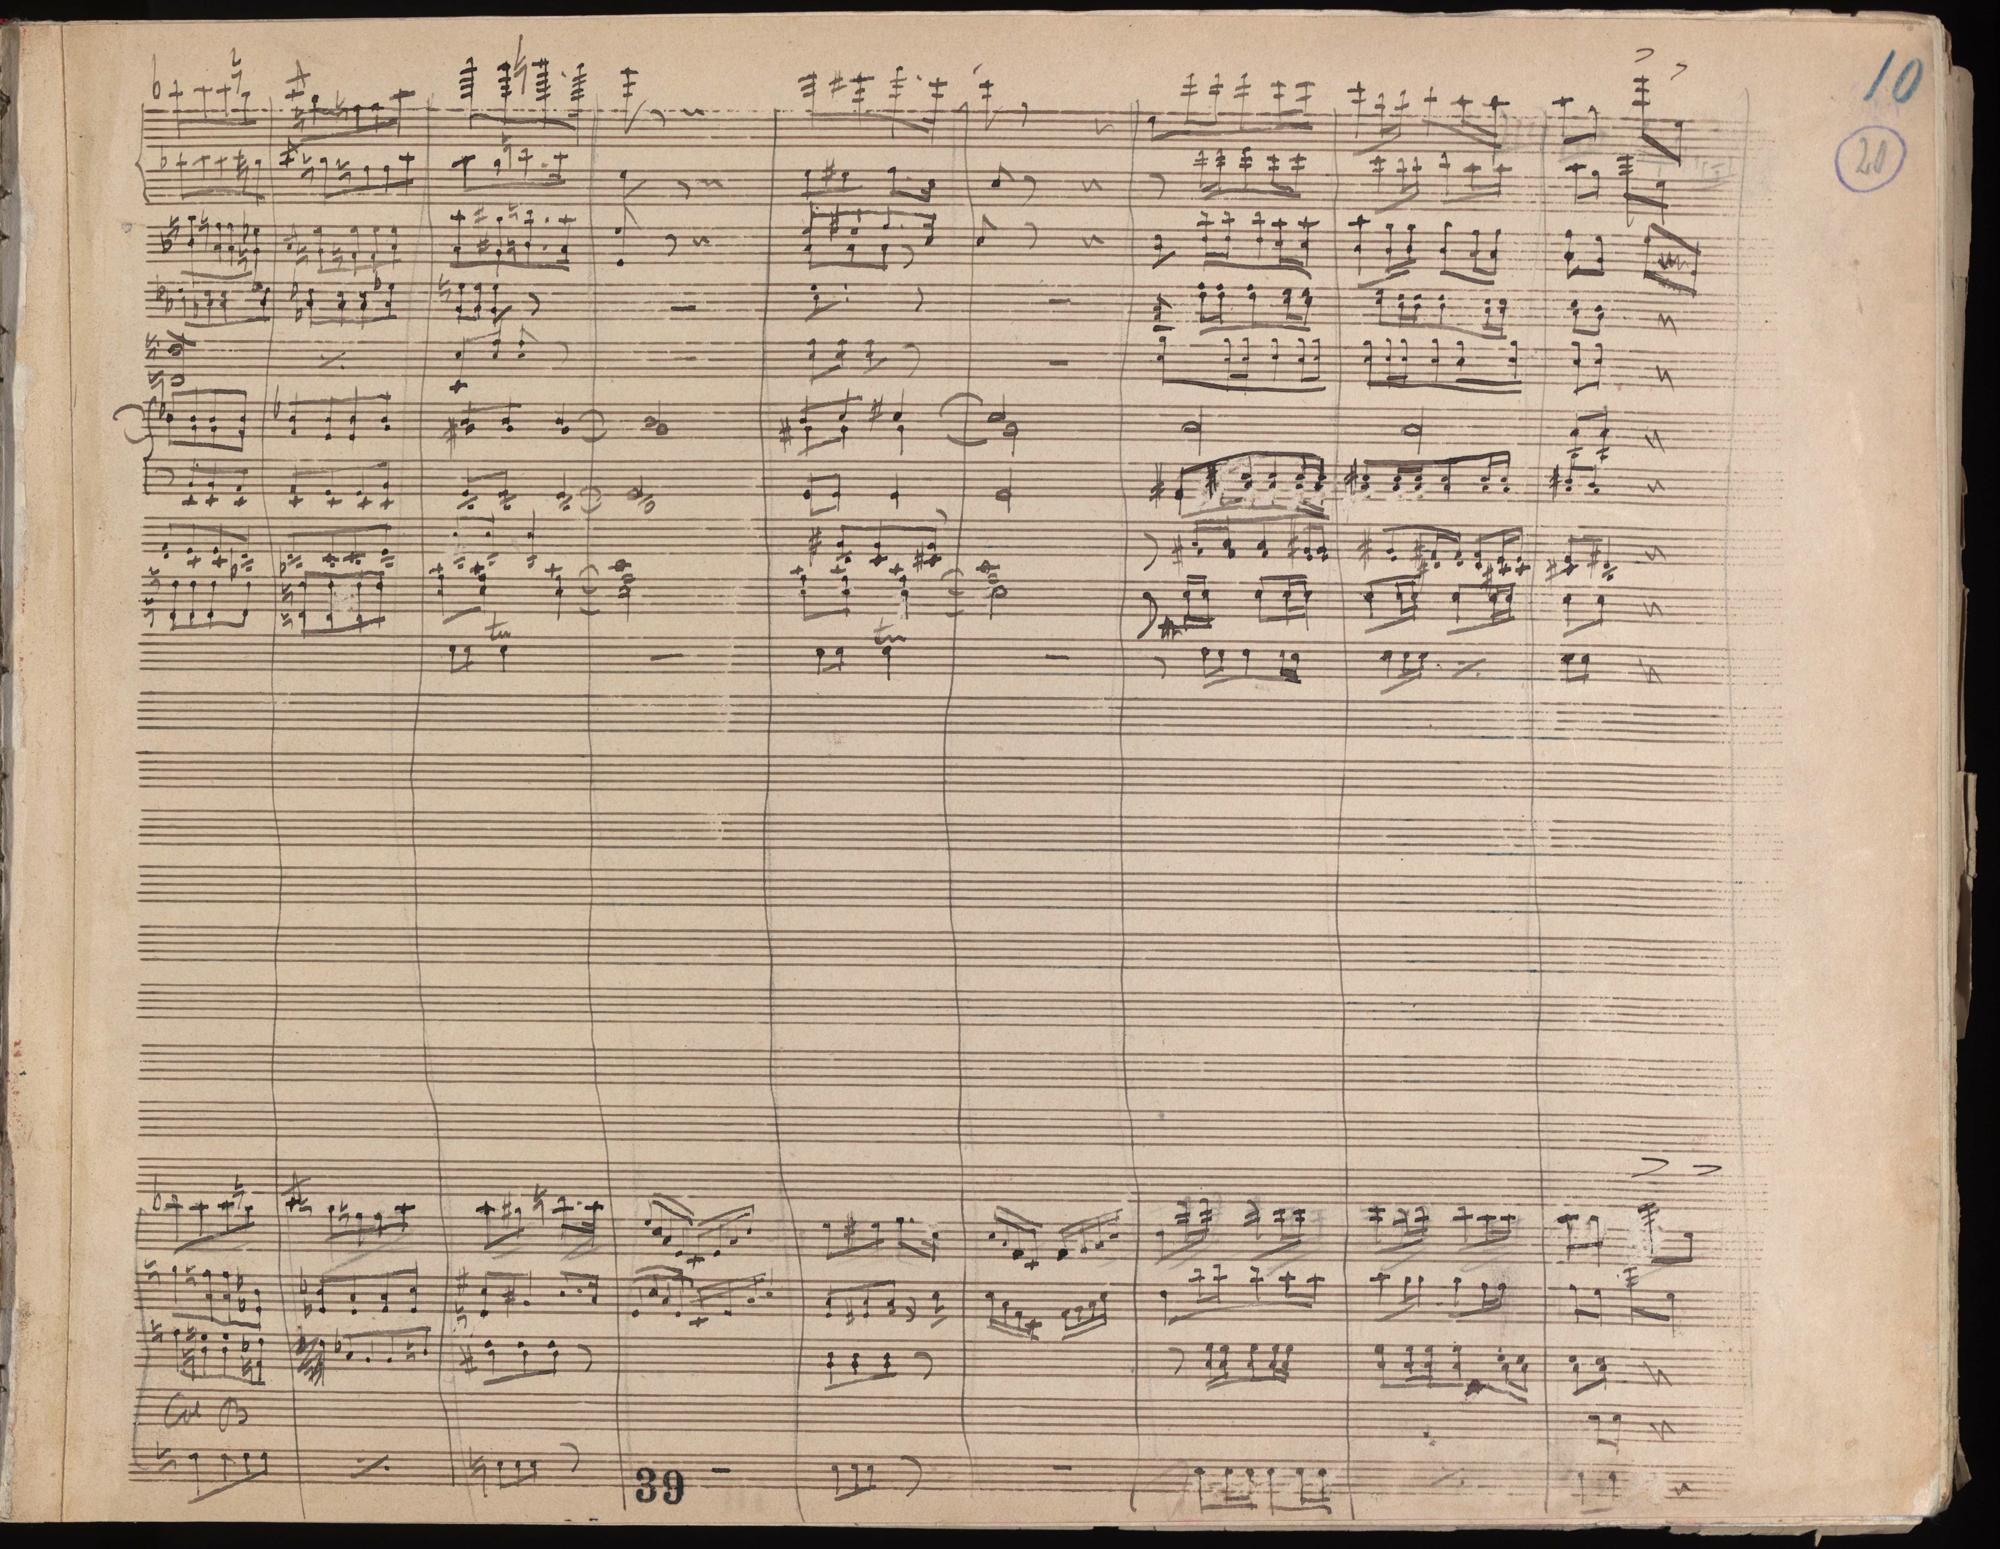 10
20
tr
tr
Col B
39